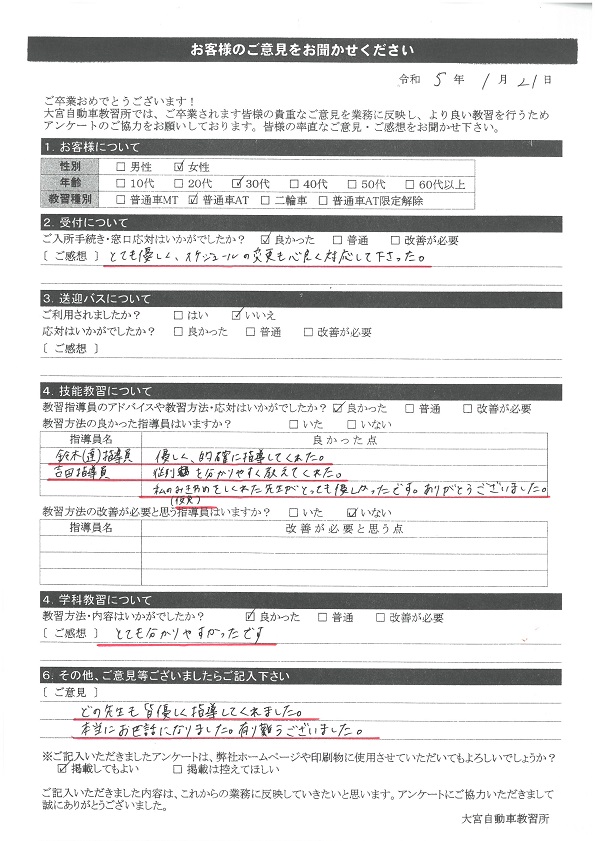 お客様のご意見をお聞かせください
令和 5 年 1 月 21 日
ご卒業おめでとうございます!
大宮自動車教習所では、ご卒業されます皆様の貴重なご意見を業務に反映し、より良い教習を行うため
アンケートのご協力をお願いしております。皆様の率直なご意見・ご感想をお聞かせ下さい。
1. お客様について
性別 □ 男性 ☑ 女性
年齢 □ 10代 □ 20代 ☑ 30代 □ 40代 □ 50代 □ 60代以上
教習種別 □ 普通車MT ☑ 普通車AT □ 二輪車 □ 普通車AT限定解除
2. 受付について
ご入所手続き・窓口応対はいかがでしたか? ☑ 良かった □ 普通 □ 改善が必要
〔 ご感想 〕 とても優しく、スケジュールの変更も心良く対応して下さった。
3. 送迎バスについて
ご利用されましたか? □ はい ☑ いいえ
応対はいかがでしたか? □ 良かった □ 普通 □ 改善が必要
〔 ご感想 〕
4. 技能教習について
教習指導員のアドバイスや教習方法・応対はいかがでしたか? ☑ 良かった □ 普通 □ 改善が必要
教習方法の良かった指導員はいますか? □ いた □ いない
指導員名 良かった点
鈴木(達)指導員 優しく、的確に指導してくれた。
吉田指導員 を分かりやすく教えてくれた。
私のみきわめをしてくれた先生がとっても優しかったです。ありがとうございました。
教習方法の改善が必要と思う指導員はいますか? □ いた ☑ いない
指導員名 改善が必要と思う点
4. 学科教習について
教習方法・内容はいかがでしたか? ☑ 良かった □ 普通 □ 改善が必要
〔 ご感想 〕 とても分かりやすかったです
6. その他、ご意見等ございましたらご記入下さい
〔 ご意見 〕
どの先生も皆優しく指導してくれました。
本当にお世話になりました。有り難うございました。
※ご記入いただきましたアンケートは、弊社ホームページや印刷物に使用させていただいてもよろしいでしょうか?
☑ 掲載してもよい □ 掲載は控えてほしい
ご記入いただきました内容は、これからの業務に反映していきたいと思います。アンケートにご協力いただきまして
誠にありがとうございました。
大宮自動車教習所